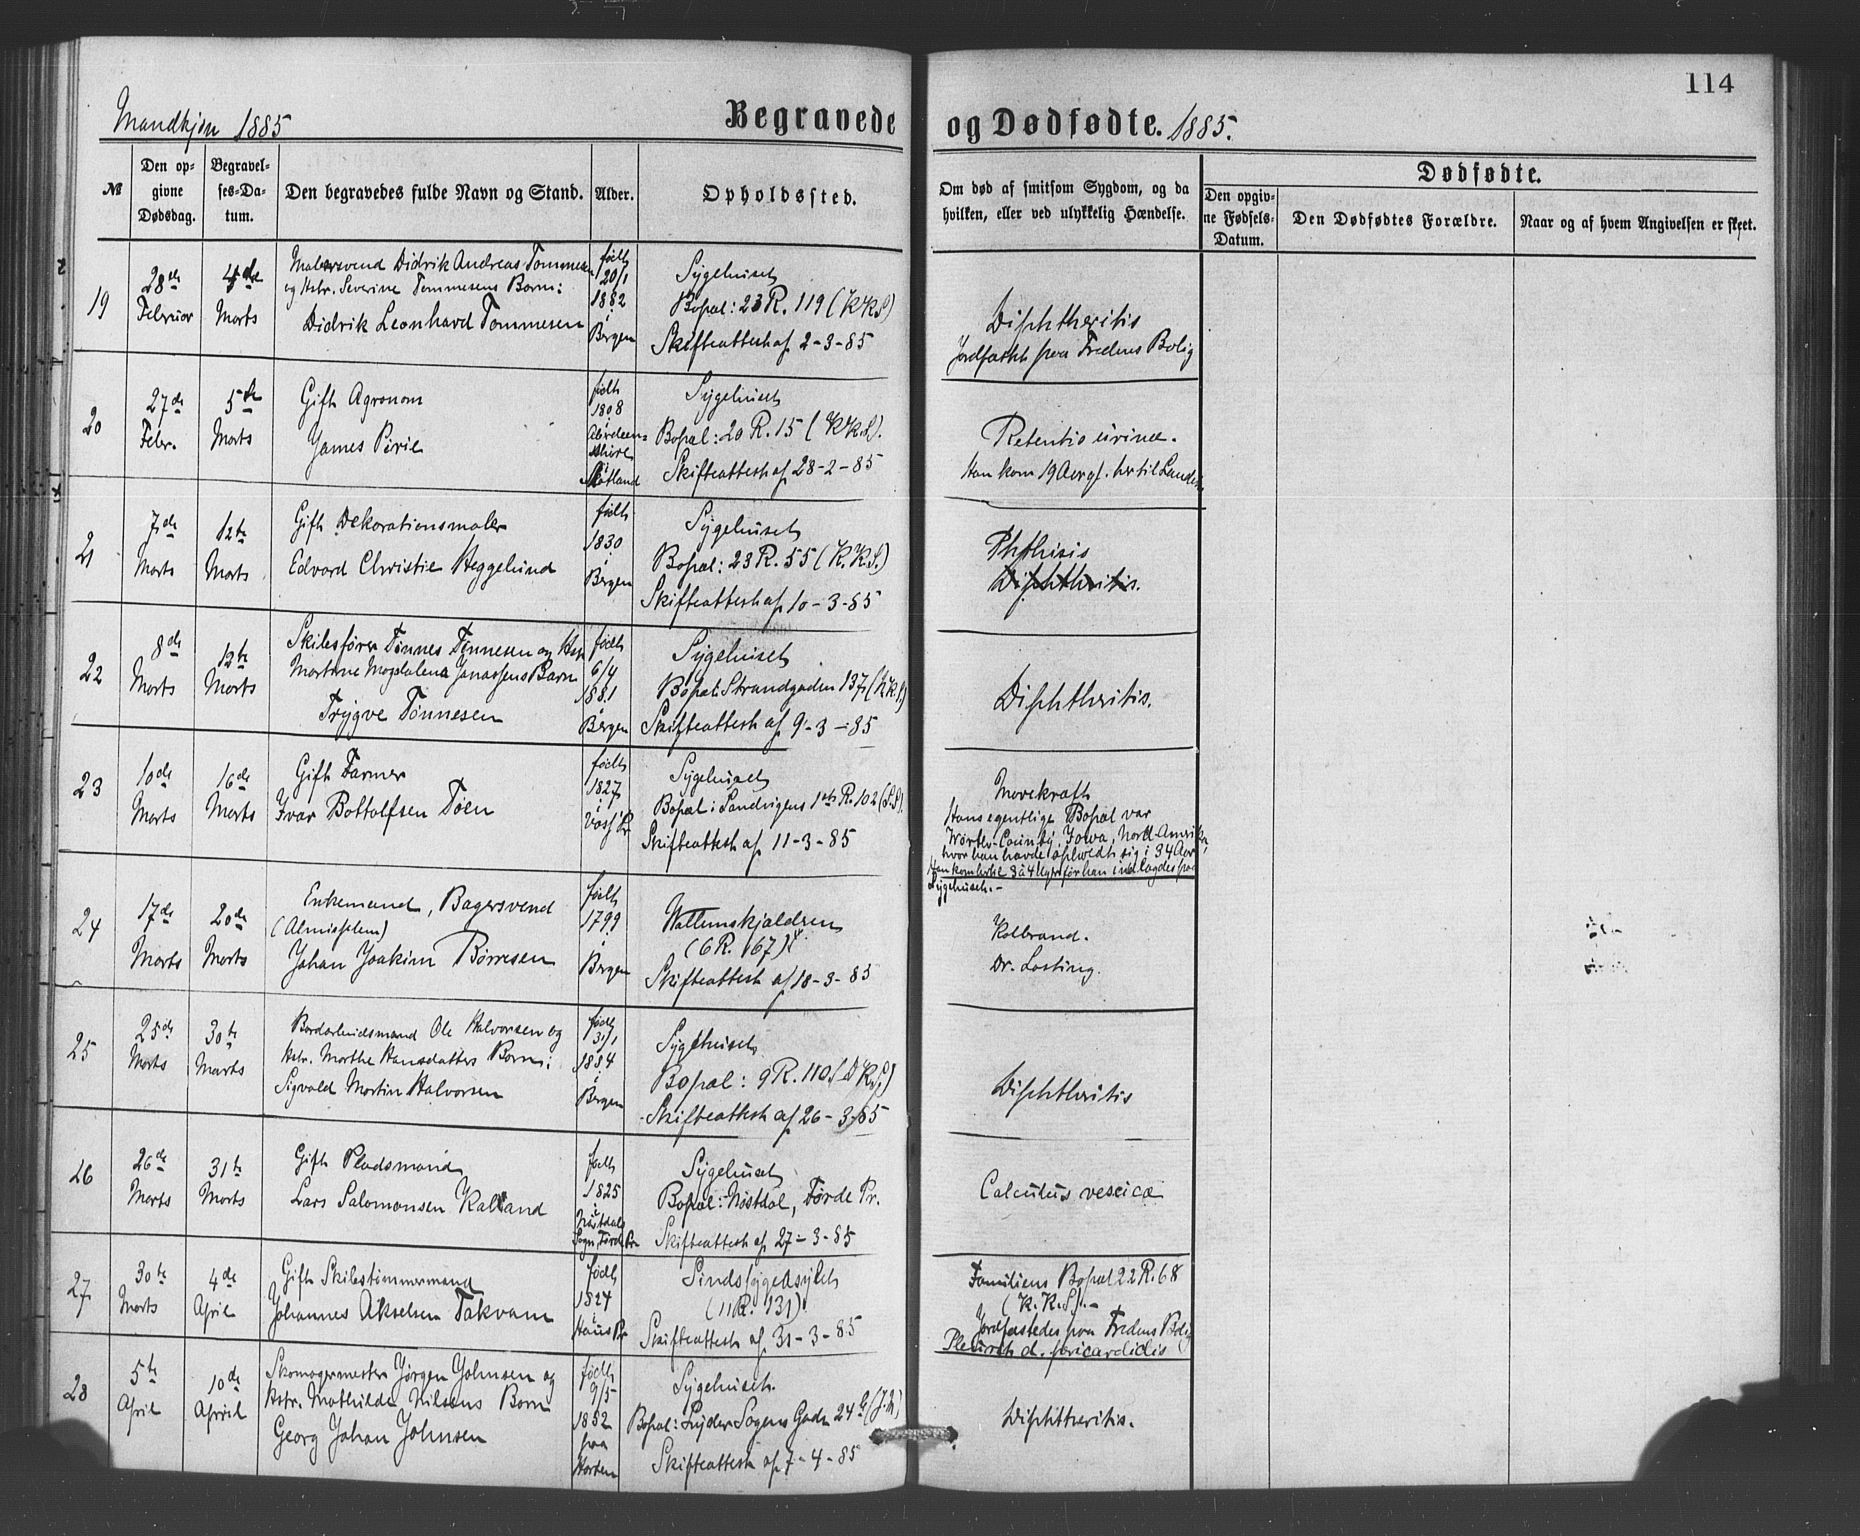 114
Mandkjøn 1885
Begravede og Dødfødte. 1885.
№
Den op-
givne
Dødsdag.
Begravel-
ses-Da-
tum.
Den begravedes fulde Navn og Stand.
Alder.
Opholdssted.
Om død af smitsom Sygdom, og da
hvilken, eller ved ulykkelig Hændelse.
Dødfødte.
Den opgiv-
ne Fødsels-
Datum.
Den Dødfødtes Forældre.
Naar og af hvem Angivelsen er skeet.
19
28de
Februar
4de
Marts
Malersvend Didrik Andreas Tommesen
og Hstr. Severine Tommesens Barn:
Didrik Leonhard Tommesen
født
20/1
1882
i
Bergen
Sygehuset
Bopæl: 23 R. 119 (KKS)
Skifteattest af 2-3-85
Diphtheritis
Jordfæstet paa Fredens Bolig
20
27de
Febr.
5te
Marts
Gift Agronom
James Pirie
født
1808
i
Aberdeen-
shire
i
Skotland
Sygehuset
Bopæl: 20 R. 15 (KKS).
Skifteattest af 28-2-85
Retentio urinæ.
Han kom 19 Aar gl. her til Landet
21
7de
Marts
12te
Marts
Gift Dekorationsmaler
Edvard Christie Heggelund
født
1830
i
Bergen
Sygehuset
Bopæl: 23 R. 55 (K.K.S.)
Skifteattest af 10-3-85
Phthisis
Diphtheritis.
22
8de
Marts
12te
Marts
Skibsfører Tønnes Tønnesen og Hstr
Marthine Magdalena Janassens Barn
Trygve Tønnesen
født
6/4
1881
i
Bergen
Sygehuset
Bopæl: Strandgaden 137 (KKS)
Skifteattest af 9-3-85
Diphtheritis.
23
10de
Marts
16de
Marts
Gift Farmer
Ivar Bottolfsen Tøen
født
1827
i
Voss Pr
Sygehuset
Bopæl: Sandvigens 1ste R. 102 (S.S).
Skifteattest af 11-3-85
Mavekræft
Hans egentlige Bopæl var
Worth-County, Iowa, Nord-Amerika,
hvor han havde opholdt sig i 34 Aar
Han kom hertil 3 à 4 Uger før han indlagdes paa
Sygehuset.-
24
17de
Marts
20de
Marts
Enkemand, Bagersvend
(Almisselem)
Johan Joakim Børresen
født
1799
i
Bergen
Wallemskjældren
(6 R. 167)
Skifteattest af 18-3-85
Koldbrand.
Dr. Losting.
25
25de
Marts
30te
Marts
Bordarbeidsmand Ole Halvorsen og
Hstr. Marthe Hansdatters Barn:
Sigvald Martin Halvorsen
født
31/1
1884
i
Bergen
Sygehuset
Bopæl: 9 R. 110 (DKS)
Skifteattest af 26-3-85
Diphtheritis
26
26de
Marts
31te
Marts
Gift Pladsmand
Lars Salomonsen Kalland
født
1825
i
Nøstdals
Sogn, Førde Pr
Sygehuset
Bopæl: Nøstdal, Førde Pr.
Skifteattest af 27-3-85
Calculus vesicæ
27
30te
Marts
4de
April
Gift Skibstømmermand
Johannes Akselsen Takvam
født
1824
i
Haus Pr
Sindssygeasylet
(11 R. 131)
Skifteattest af 31-3-85
Familiens Bopæl 22 R. 68
(K.K.S).-
Jordfæstedes paa Fredens Bolig
Pleurit d. pericarditis
28
5te
April
10de
April
Skomagermester Jørgen Johnsen og
Hstr. Mathilde Nilsens Barn
Georg Johan Johnsen
født
9/5
1882
paa
Horten
Sygehuset.
Bopæl: Lyder Sagens Gade 24 (J.M)
Skifteattest af 7-4-85
Diphtheritis.